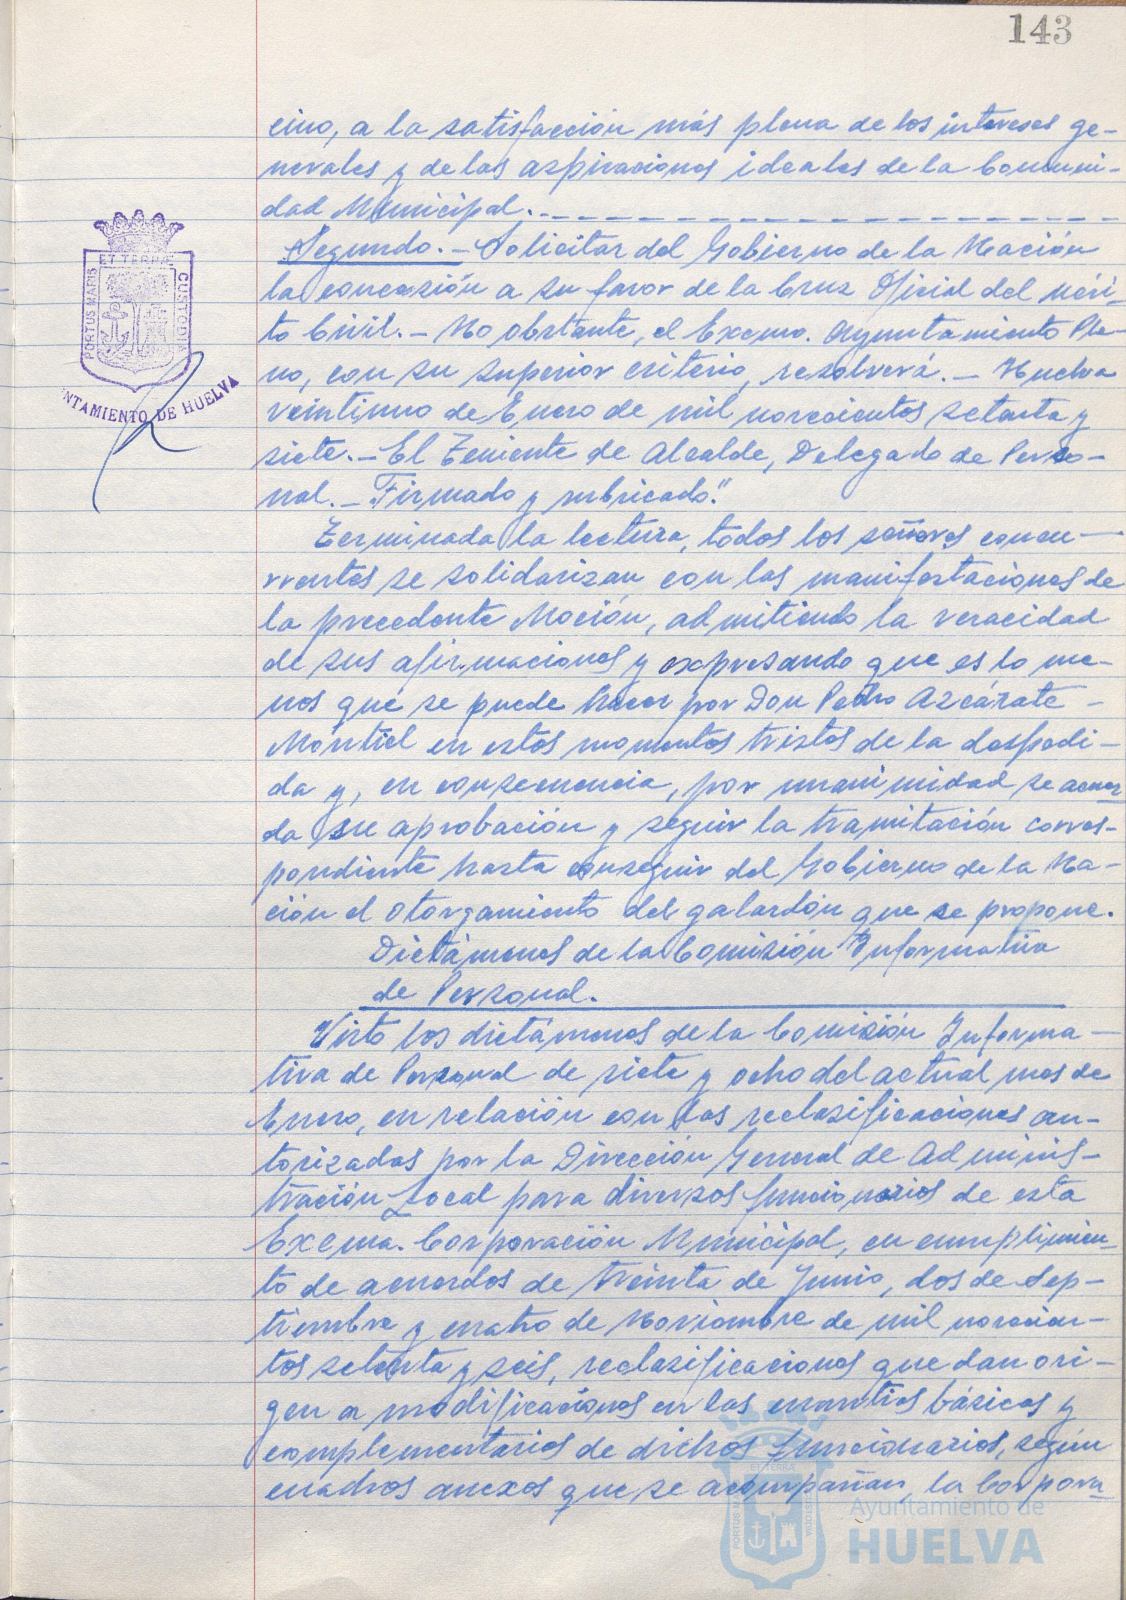 143
cino, a la satisfacción más plena de los intereses ge-
nerales y de las aspiraciones ideales de la Comuni-
dad Municipal.-
Segundo.- Solicitar del Gobierno de la Nación
la concesión a su favor de la Cruz Oficial del Méri-
to Civil.- No obstante, el Excmo. Ayuntamiento Ple-
no, con su superior criterio, resolverá.- Huelva
veintiuno de Enero de mil novecientos setenta y
siete.- El Teniente de Alcalde, Delegado de Perso-
nal.- Firmado y rubricado."
Terminada la lectura, todos los señores concu-
rrentes se solidarizan con las manifestaciones de
la precedente Moción, admitiendo la veracidad
de sus afirmaciones y expresando que es lo me-
nos que se puede hacer por Don Pedro Azcárate
Montiel en estos momentos tristes de la despedi-
da y, en consecuencia, por unanimidad se acuer
da su aprobación y seguir la tramitación corres-
pondiente hasta conseguir del Gobierno de la Na-
ción el otorgamiento del galardón que se propone.
Dictámenes de la Comisión Informativa
de Personal.
Visto los dictámenes de la Comisión Informa-
tiva de Personal de siete y ocho del actual mes de
Enero, en relación con las reclasificaciones au-
torizadas por la Dirección General de Adminis-
tración Local para diversos funcionarios de esta
Excma. Corporación Municipal, en cumplimien-
to de acuerdos de treinta de Junio, dos de Sep-
tiembre y cuatro de Noviembre de mil novecien-
tos setenta y seis, reclasificaciones que dan ori-
gen a modificaciones en las cuantías básicas y
complementarios de dichos funcionarios, según
cuadros anexos que se acompañan, la Corpora-
PORTUS MARIS ET TERRAE CUSTODIA
NTAMIENTO DE HUELVA
Ayuntamiento de
HUELVA